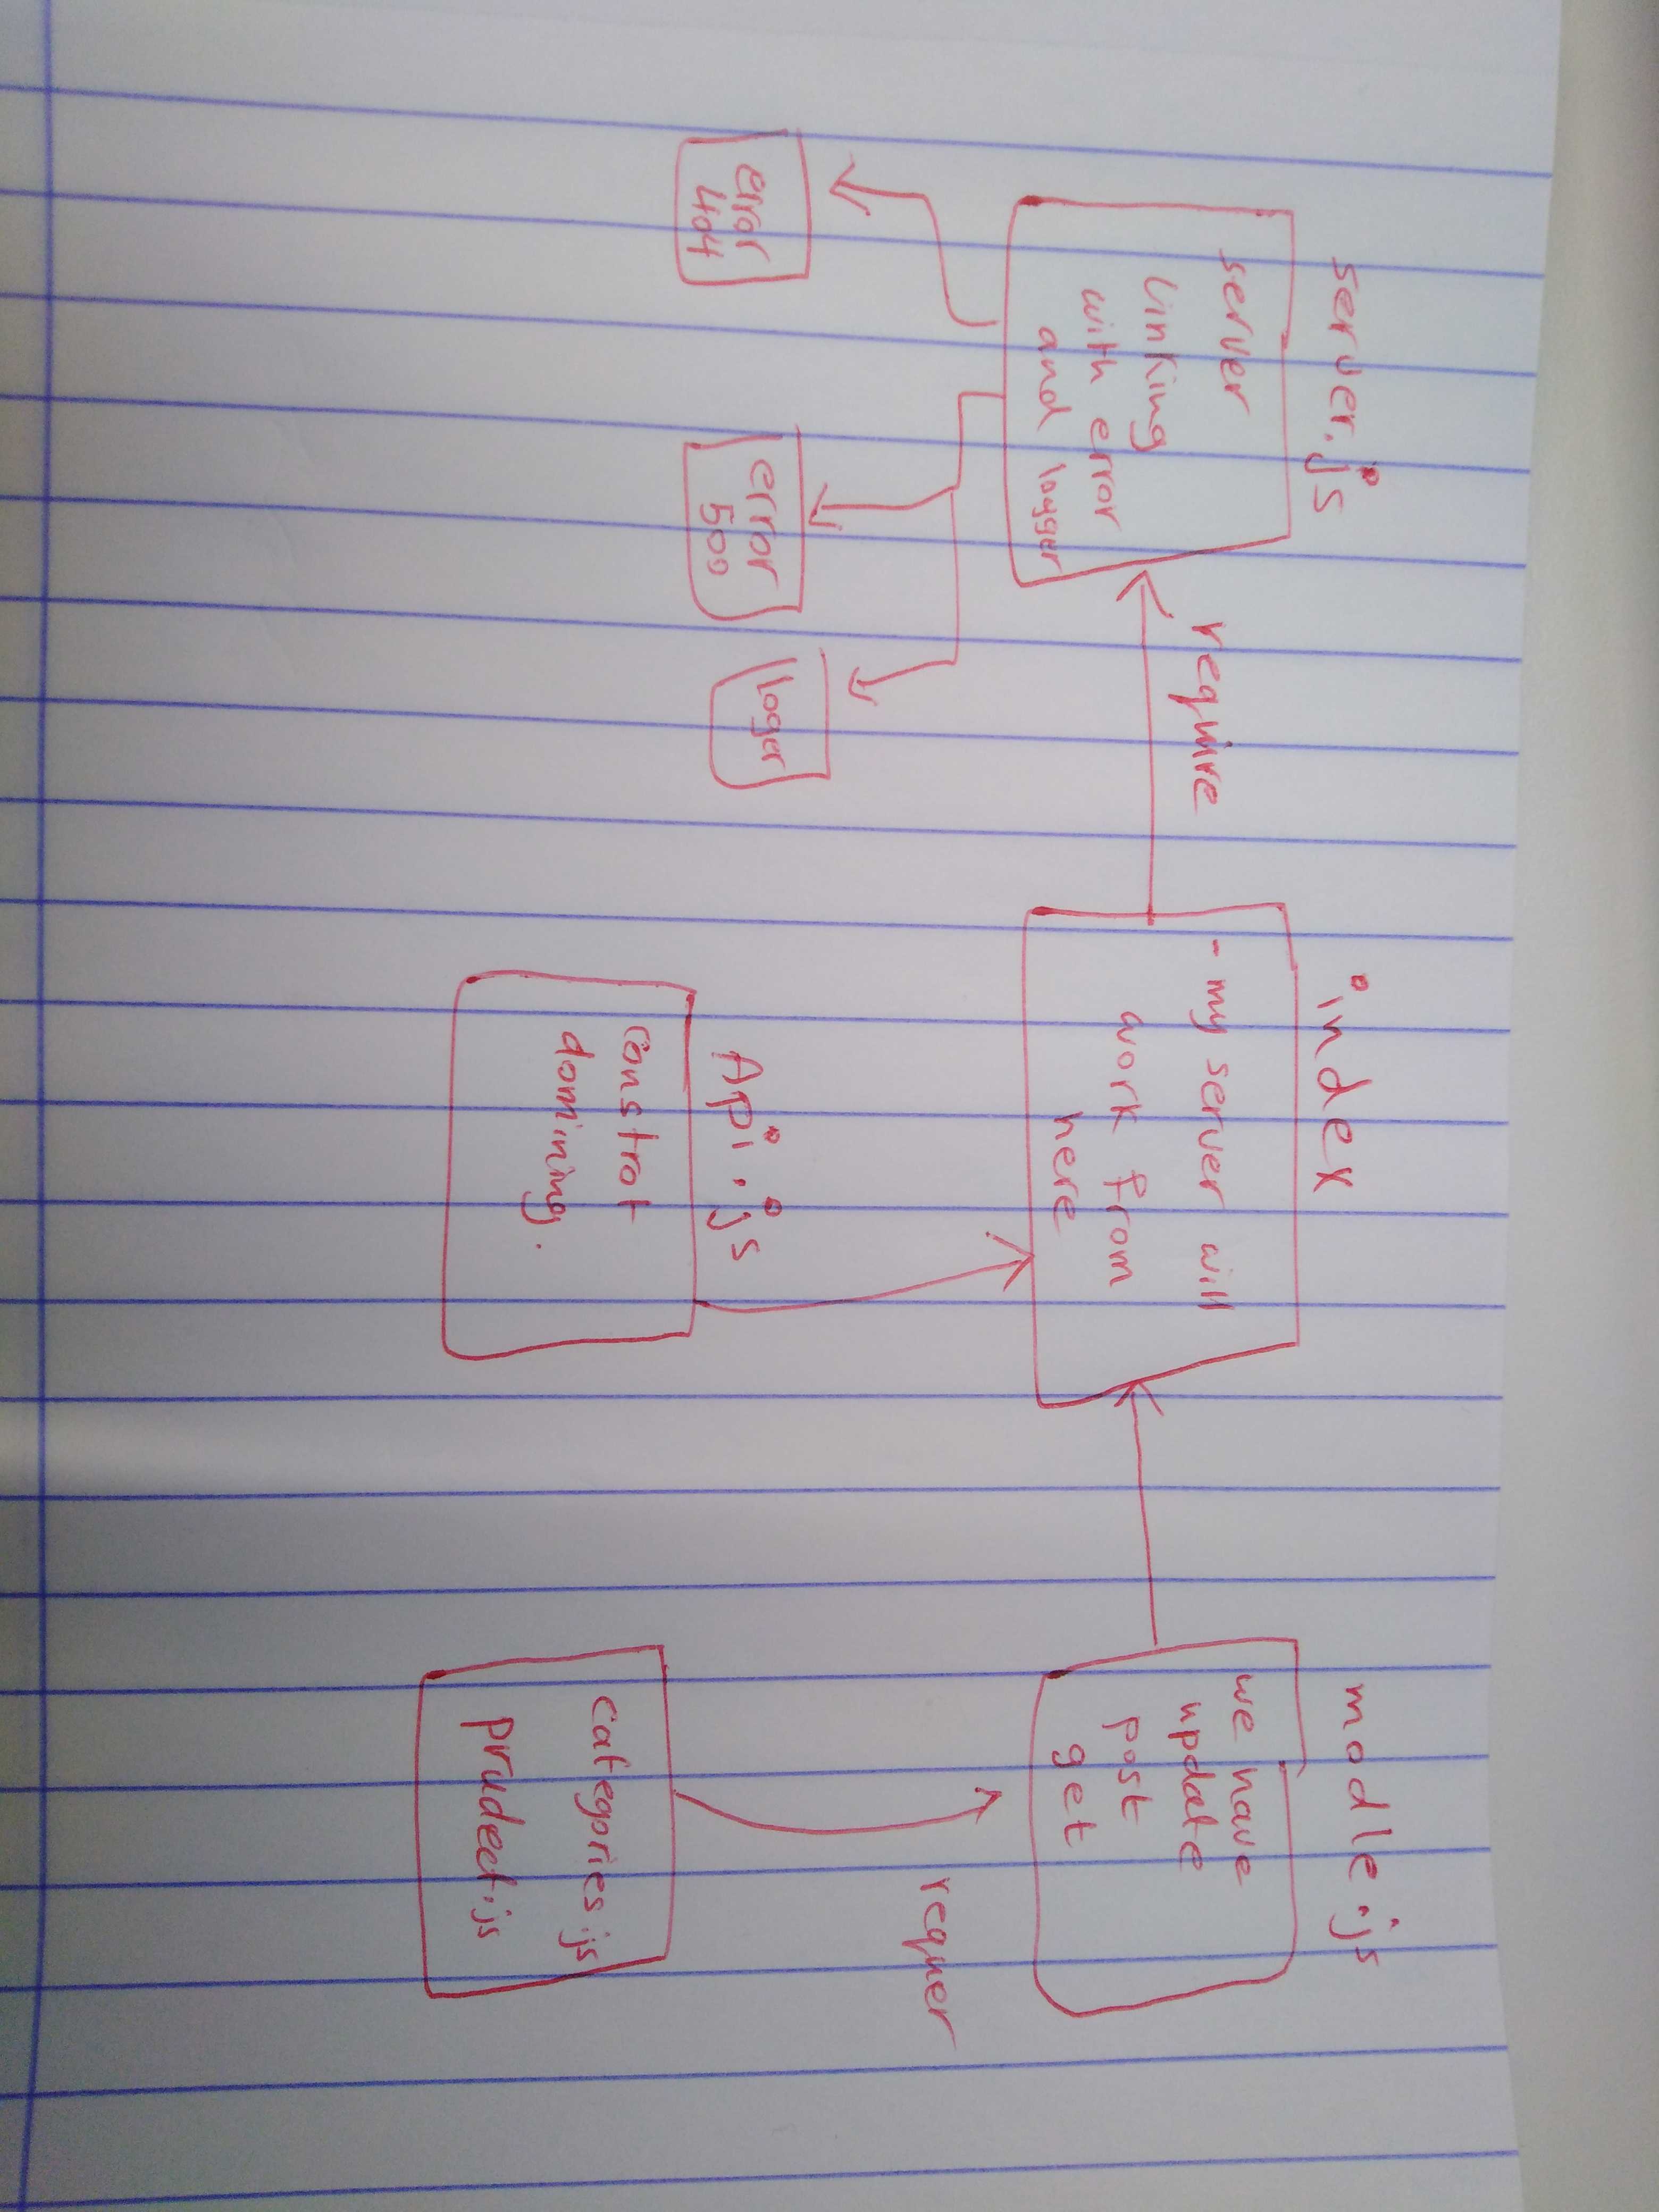 server.js
server
linking
with error
and logger
error
404
error
500
Loger
require
index
- my server will
work from
here
Api.js
constrat
domining.
modle.js
we have
update
post
get
requer
categories.js
prudect.js